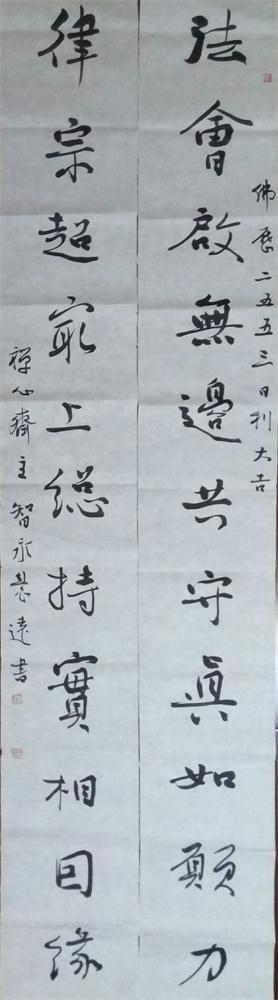 佛歷二五五三日利大吉
法會啟無邊共守眞如願力
律宗超㝡上總持實相因緣
禪心齋主智永遠書